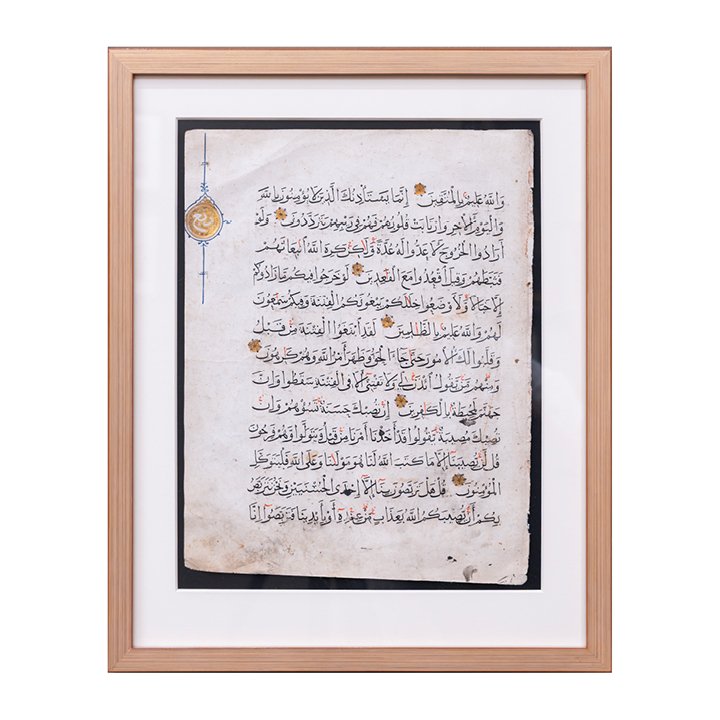 والله عليم بالمتقين إنما يستأذنك الذين لا يؤمنون بالله
واليوم الآخر وارتابت قلوبهم فهم في ريبهم يترددون ولو
أرادوا الخروج لأعدوا له عدة ولكن كره الله انبعاثهم
فثبطهم وقيل اقعدوا مع القعدين لو خرجوا فيكم ما زادوكم
إلا خبالا ولأوضعوا خللكم يبغونكم الفتنة وفيكم سمعون
لهم والله عليم بالظلمين لقد ابتغوا الفتنة من قبل
وقلبوا لك الأمور حتى جاء الحق وظهر أمر الله وهم كرهون
ومنهم من يقول ائذن لي ولا تفتني ألا في الفتنة سقطوا وإن
جهنم لمحيطة بالكفرين إن تصبك حسنة تسؤهم وإن
تصبك مصيبة يقولوا قد أخذنا أمرنا من قبل ويتولوا وهم فرحون
قل لن يصيبنا إلا ما كتب الله لنا هو مولىنا وعلى الله فليتوكل
المؤمنون قل هل تربصون بنا إلا إحدى الحسنيين ونحن نتربص
بكم أن يصيبكم الله بعذاب من عنده أو بأيدينا فتربصوا إنا